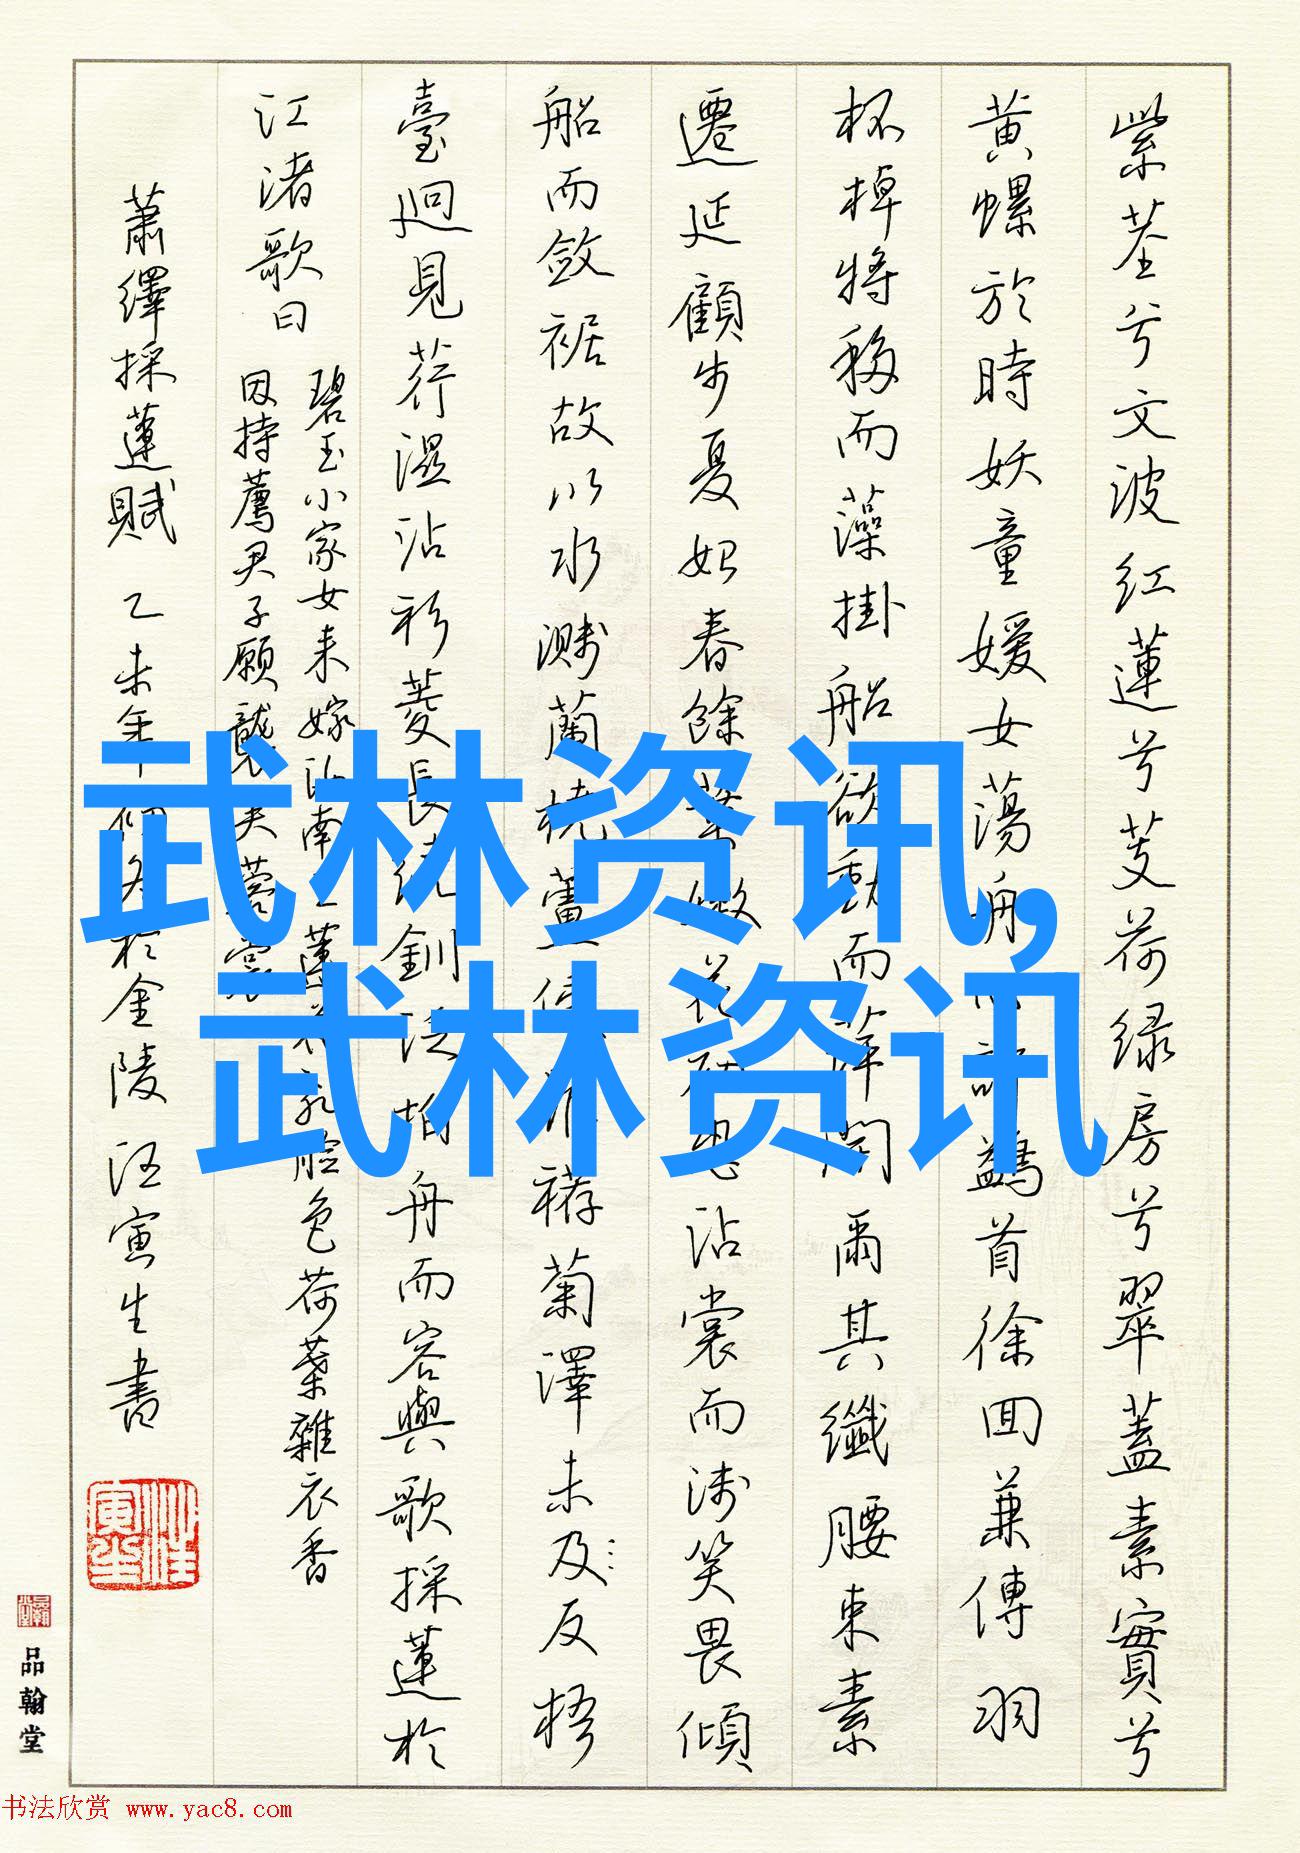 紫茎兮文波红蓮兮芰荷绿房兮翠蓋素實兮
黄螺於時妖童媛女蕩舟心許鷁首徐回兼傳羽
杯棹將移而藻掛船欲動而萍開爾其纖腰束素
遷延顧步夏始春餘葉嫩花初恐沾裳而浅笑畏傾
船而斂裾故以水濺蘭橈蘆侵菊澤未及反梧
臺迥見荇濕沾衫菱長繞釧泛柏舟而容與歌採蓮於
江渚歌曰
碧玉小家女来嫁汝南王蓮花乱臉色荷葉雜衣香
因持薦君子願襲芙蓉裳
蕭繹採蓮賦 乙未年仲冬於金陵汪寅生書
武林资讯,
武林资讯
品翰堂
书法欣赏 www.yac8.com